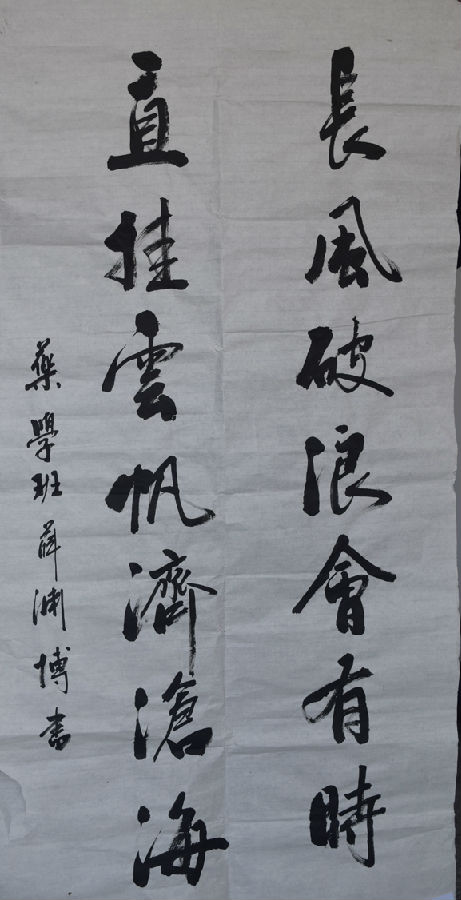 長風破浪會有時
直挂雲帆濟滄海
藥學班薛淵博书